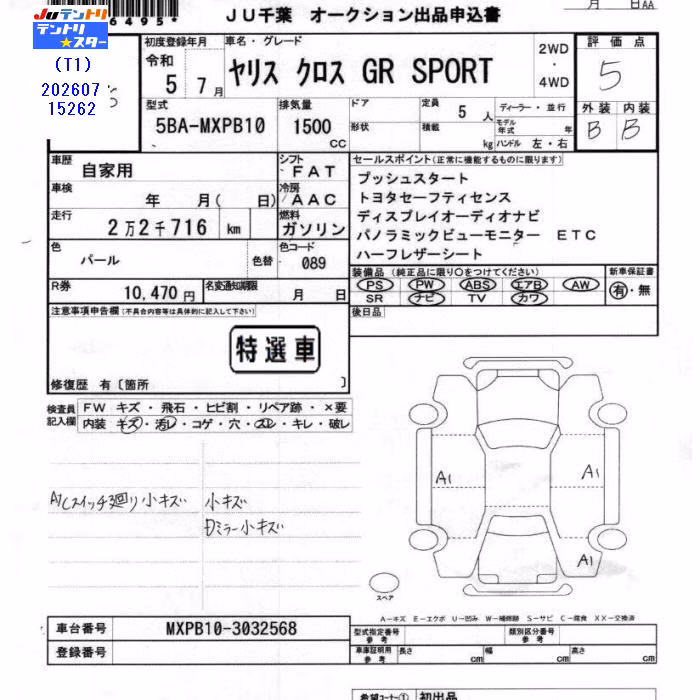 6495*
JU千葉 オークション出品申込書
月 日AA
JUテントリ
テントリ★スター
(T1)
202607
15262
初度登録年月
令和
5 7月
車名・グレード
ヤリス クロス GR SPORT
2WD
・
4WD
評価点
5
外装 内装
B B
型式
5BA-MXPB10
排気量
1500
CC
ドア
形状
定員
5人
積載
kg
ディーラー・並行
モデル年式 年
ハンドル 左・右
車歴
自家用
シフト
FAT
車検
年 月( 日)
冷房
AAC
走行
2万2千716 km
燃料
ガソリン
色
パール
色替
色コード
089
R券
10,470円
名変通知期限
月 日
セールスポイント(正常に機能するものに限ります)
プッシュスタート
トヨタセーフティセンス
ディスプレイオーディオナビ
パノラミックビューモニター ETC
ハーフレザーシート
装備品(純正品に限り〇をつけてください)
PS PW ABS エアB AW
SR ナビ TV カワ
新車保証書
有・無
後日品
注意事項申告欄(不具合内容等は具体的に記入して下さい)
特選車
修復歴 有〔箇所 〕
検査員
記入欄
FW キズ・飛石・ヒビ割・リペア跡・×要
内装 キズ・汚レ・コゲ・穴・スレ・キレ・破レ
小キズ
小キズ
Dミラー小キズ
A1
A1
A1
スペア
A-キズ E-エクボ U-凹み W-補修跡 S-サビ C-腐食 XX-交換済
車台番号
MXPB10-3032568
登録番号
型式指定番号
参考
類別区分番号
参考
車庫証明用
参考
長さ cm
幅 cm
高さ cm
希望コーナー① 初出品